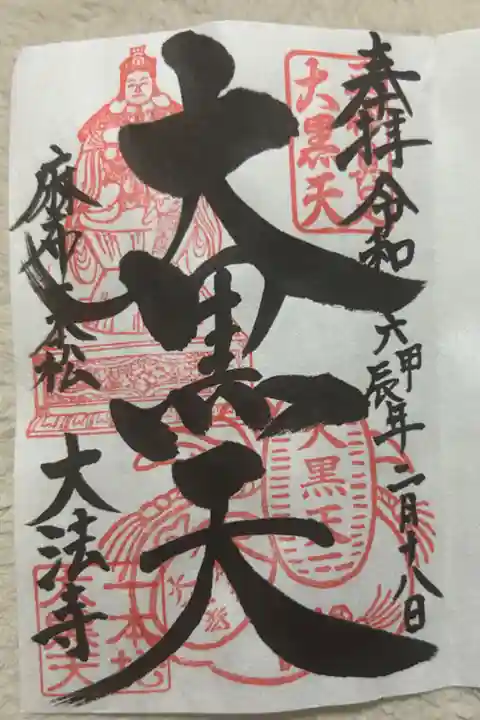 奉拝 令和六甲辰年二月十八日
大黒天
大黒天
大黒天
麻布一本松
大法寺
一本松
大黒天